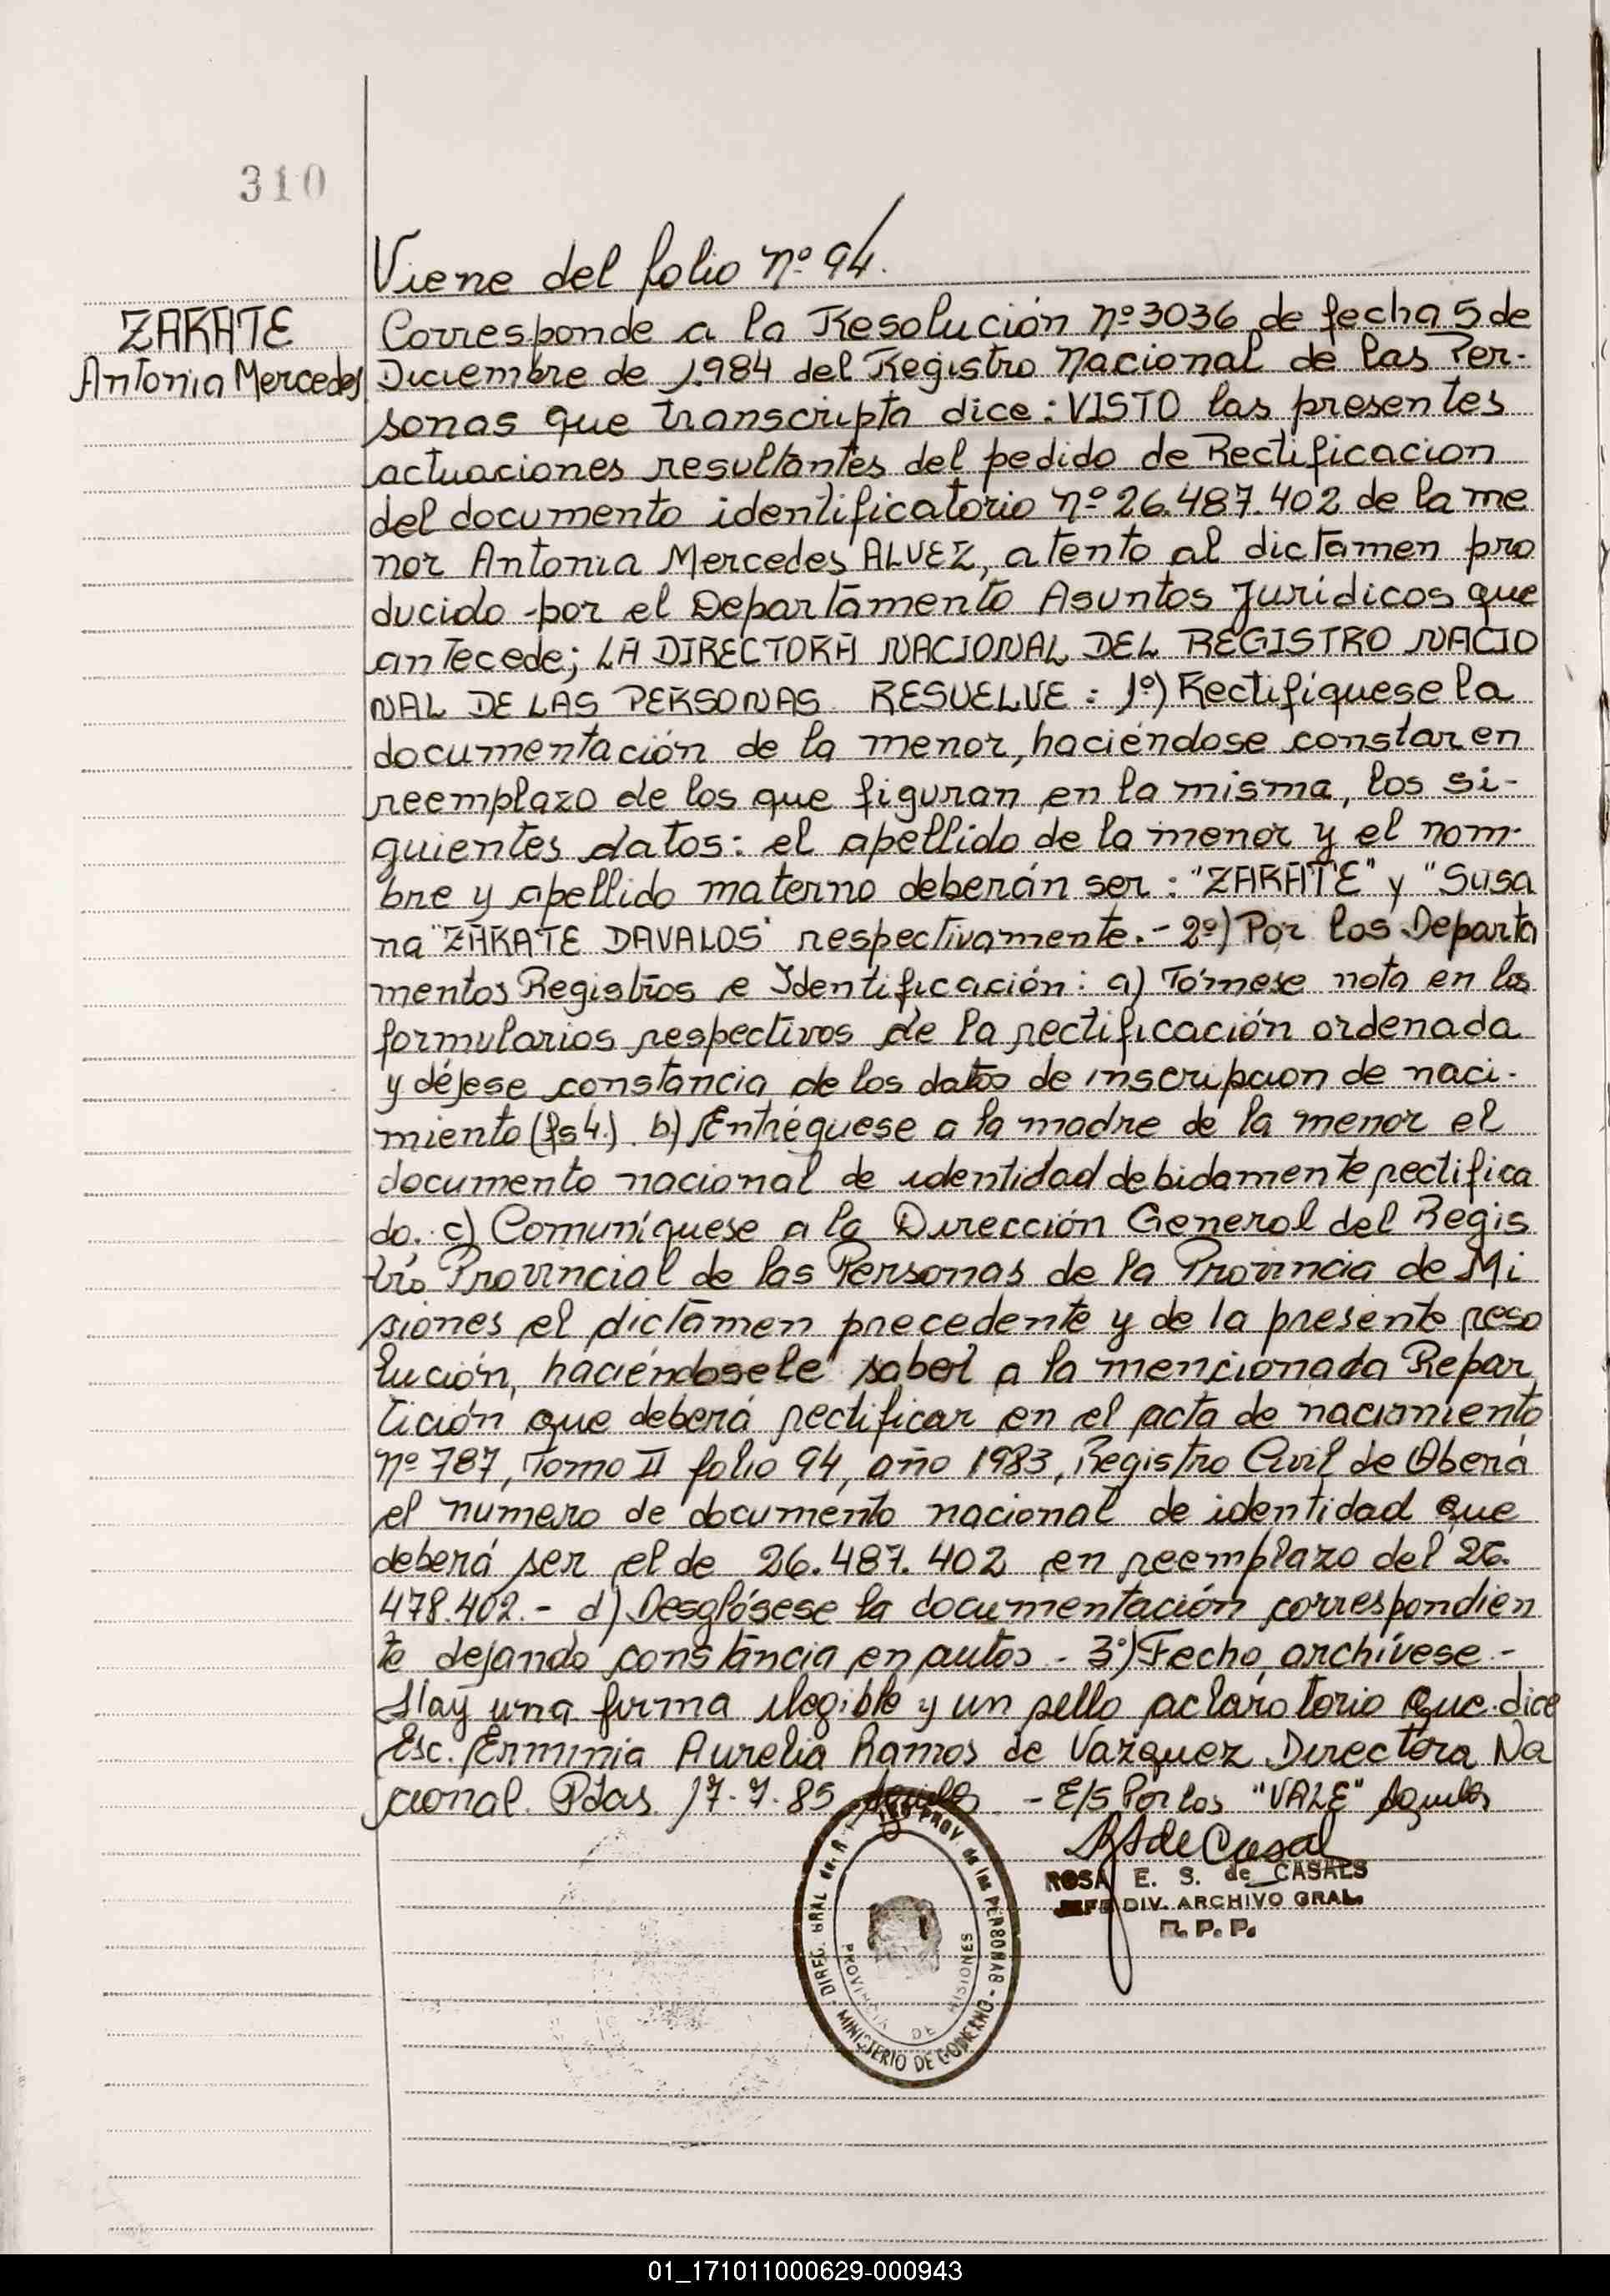 310
Viene del folio nº 94.
ZARATE
Antonia Mercedes
Corresponde a la Resolución nº 3036 de fecha 5 de
Diciembre de 1.984 del Registro Nacional de las Per-
sonas que transcripta dice: VISTO las presentes
actuaciones resultantes del pedido de Rectificacion
del documento identificatorio nº 26.487.402 de la me
nor Antonia Mercedes ALVEZ, atento al dictamen pro
ducido por el Departamento Asuntos Jurídicos que
antecede; LA DIRECTORA NACIONAL DEL REGISTRO NACIO
NAL DE LAS PERSONAS RESUELVE: 1º) Rectifíquese la
documentación de la menor, haciéndose constar en
reemplazo de los que figuran en la misma, los si-
guientes datos: el apellido de la menor y el nom-
bre y apellido materno deberán ser: "ZARATE" y "Susa
na "ZARATE DAVALOS" respectivamente.- 2º) Por los Departa
mentos Registros e Identificación: a) Tómese nota en los
formularios respectivos de la rectificación ordenada
y déjese constancia de los datos de inscripcion de naci-
miento (fs 4.). b) Entréguese a la madre de la menor el
documento nacional de identidad debidamente rectifica
do. c) Comuníquese a la Dirección General del Regis
tro Provincial de las Personas de la Provincia de Mi
siones el dictámen precedente y de la presente reso
lución, haciéndosele saber a la mencionada Repar
tición que deberá rectificar en el acta de nacimiento
nº 787, Tomo II folio 94, año 1983, Registro Civil de Oberá
el numero de documento nacional de identidad que
deberá ser el de 26.487.402 en reemplazo del 26.
478.402.- d) Desglósese la documentación correspondien
te dejando constancia en autos - 3º) Fecho, archívese.-
Hay una firma ilegible y un sello aclaratorio que dice
Esc. Erminia Aurelia Ramos de Vazquez Directora Na
cional. Pdas 17-7-85 - E/S Por los "VALE"
ROSA E. S. de CASALS
JEFE DIV. ARCHIVO GRAL.
R. P. P.
PROV de las PERSONAS - MINISTERIO DE GOBIERNO - DIREC. GRAL del R
PROVINCIA DE MISIONES
01_171011000629-000943